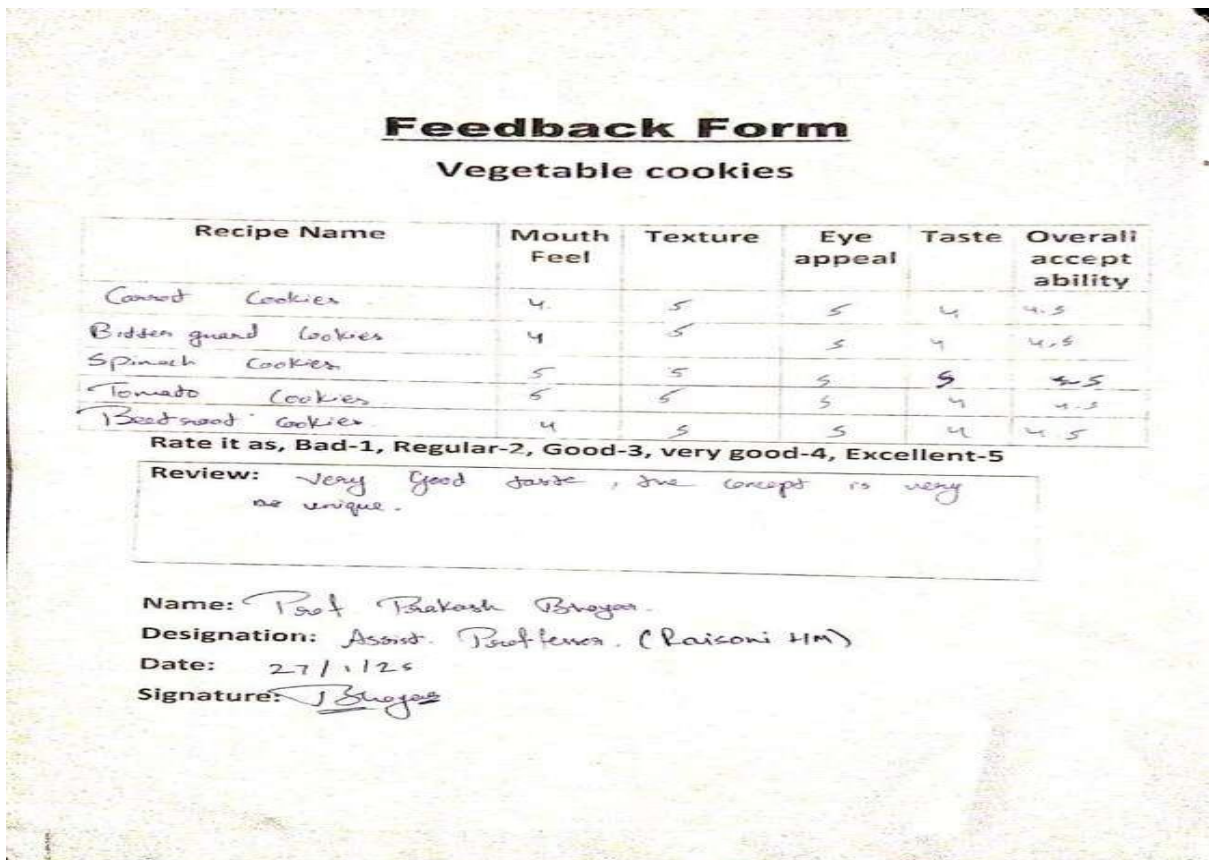 Feedback Form
Vegetable cookies
Recipe Name Mouth Feel Texture Eye appeal Taste Overall accept ability
Carrot Cookies 4. 5 5 4 4.5
Bidden guard Cookies 4 5 5 4 4.5
Spinach Cookies 5 5 5 5
Tomato Cookies 5 5 5 4 4.5
Beetroot Cookies. 4 5 5 4 4.5
Rate it as, Bad-1, Regular-2, Good-3, very good-4, Excellent-5
Review: Very Good taste, the concept is very
unique.
Name: Prof Prakash Bhoyar.
Designation: Assist. Proffesser. (Raisoni HM)
Date: 27/1/25
Signature: Bhoyar